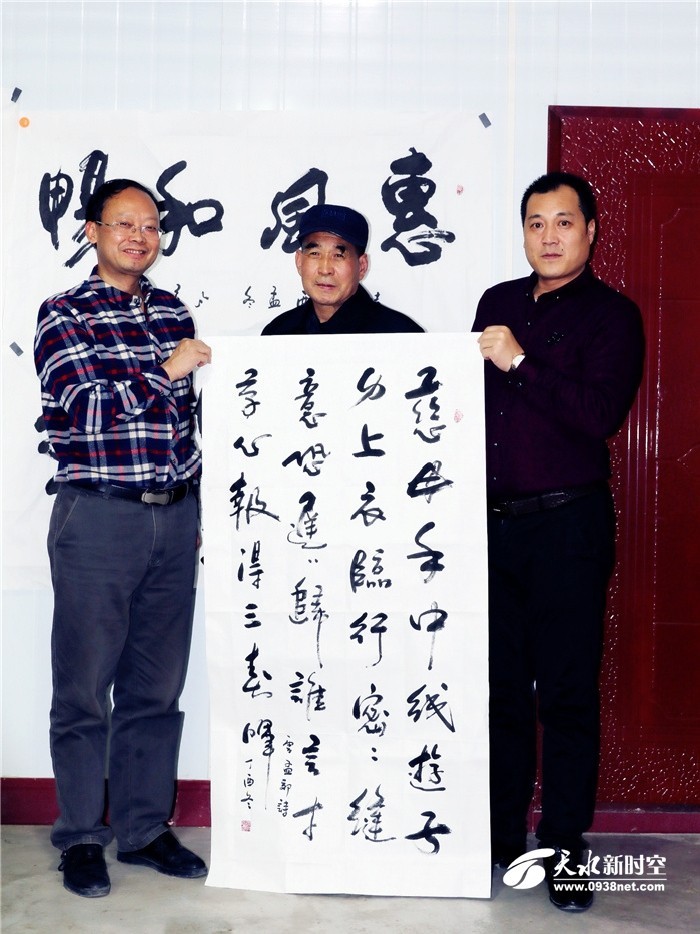 惠風和暢
孟冬
慈母手中线遊子
身上衣臨行密〻縫
意恐遲〻歸誰言寸
草心報得三春暉
孟郊詩
丁酉冬
天水新时空
www.0938net.com